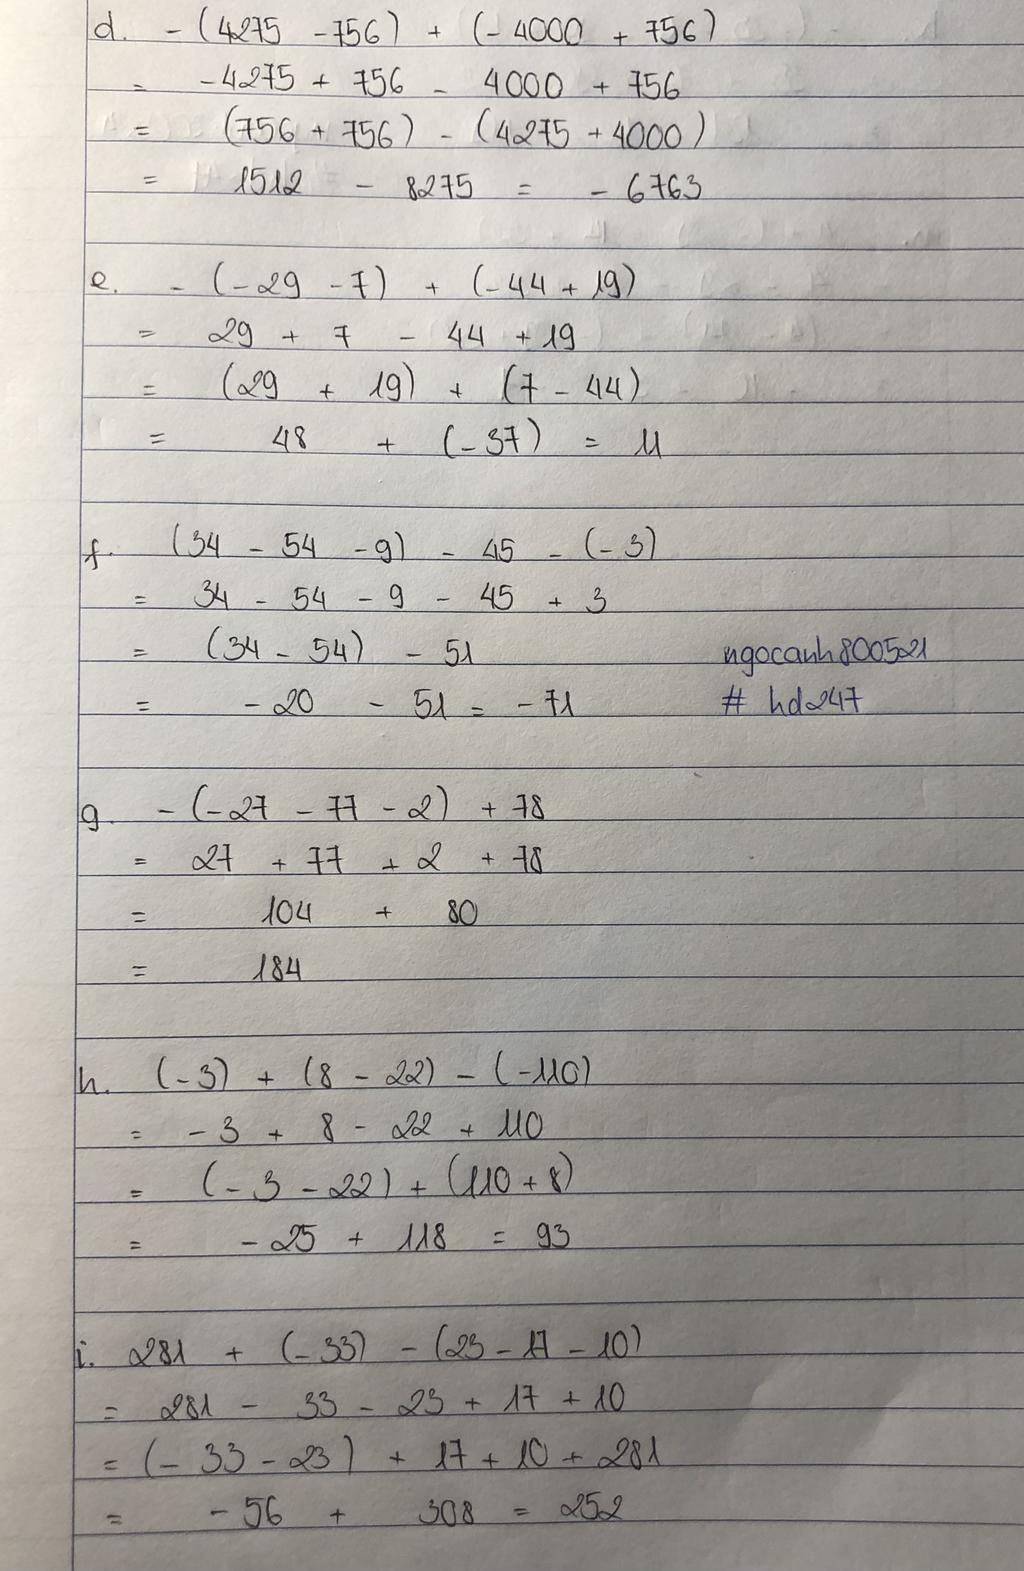 d. - (4275 - 756) + (- 4000 + 756)
= - 4275 + 756 - 4000 + 756
= (756 + 756) - (4275 + 4000)
= 1512 - 8275 = - 6763
e. - (- 29 - 7) + (- 44 + 19)
= 29 + 7 - 44 + 19
= (29 + 19) + (7 - 44)
= 48 + (- 37) = 11
f. (34 - 54 - 9) - 45 - (- 3)
= 34 - 54 - 9 - 45 + 3
= (34 - 54) - 51 ngocanh800521
= - 20 - 51 = - 71 # hd247
g. - (- 27 - 77 - 2) + 78
= 27 + 77 + 2 + 78
= 104 + 80
= 184
h. (- 3) + (8 - 22) - (- 110)
= - 3 + 8 - 22 + 110
= (- 3 - 22) + (110 + 8)
= - 25 + 118 = 93
i. 281 + (- 33) - (23 - 17 - 10)
= 281 - 33 - 23 + 17 + 10
= (- 33 - 23) + 17 + 10 + 281
= - 56 + 308 = 252